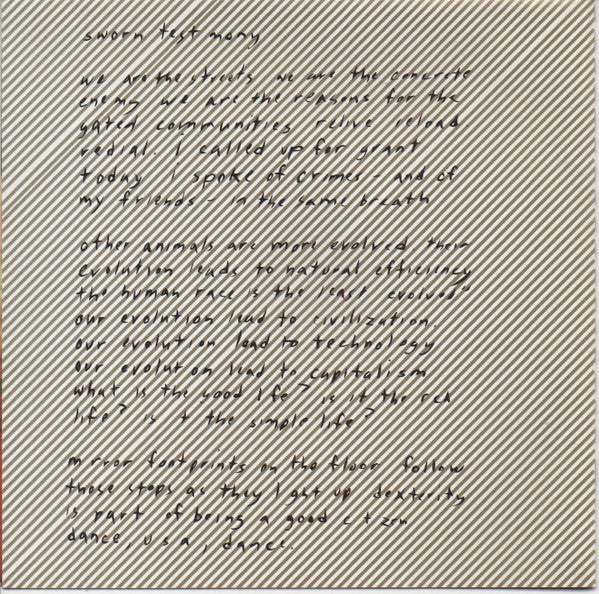 sworn testimony
we are the streets we are the concrete
enemy we are the reasons for the
gated communities relive reload
redial. I called up for grant
today I spoke of crimes - and of
my friends - in the same breath
other animals are more evolved their
evolution leads to natural efficiency
the human race is the least evolved"
our evolution lead to civilization.
our evolution lead to technology
our evolution lead to capitalism
what is the good life? is it the rich
life? is it the simple life?
mirror footprints on the floor follow
those steps as they light up dexterity
is part of being a good citizen
dance, usa, dance.